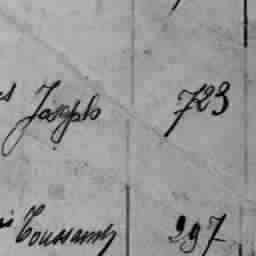 Joseph 723
Toussaint 297